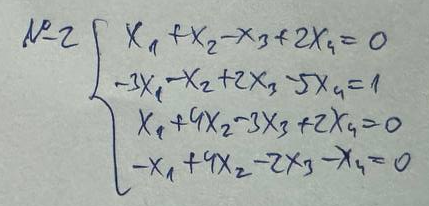 №2 { x₁ + x₂ - x₃ + 2x₄ = 0
-3x₁ - x₂ + 2x₃ - 5x₄ = 1
x₁ + 4x₂ - 3x₃ + 2x₄ = 0
-x₁ + 4x₂ - 2x₃ - x₄ = 0